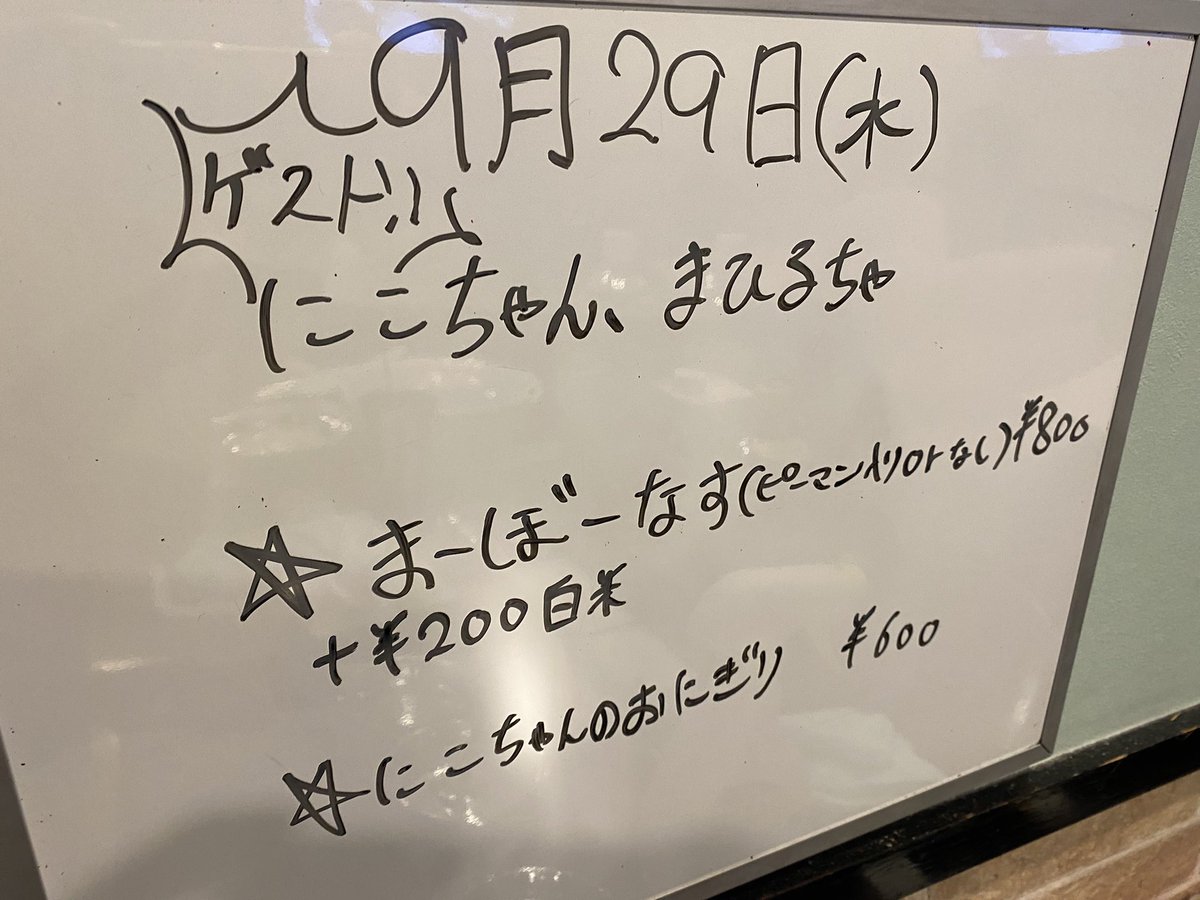 9月29日(水)
ゲスト!!
にこちゃん、まひるちゃ
☆ まーぼーなす(ピーマン入りorなし)¥800
+¥200白米
☆にこちゃんのおにぎり ¥600